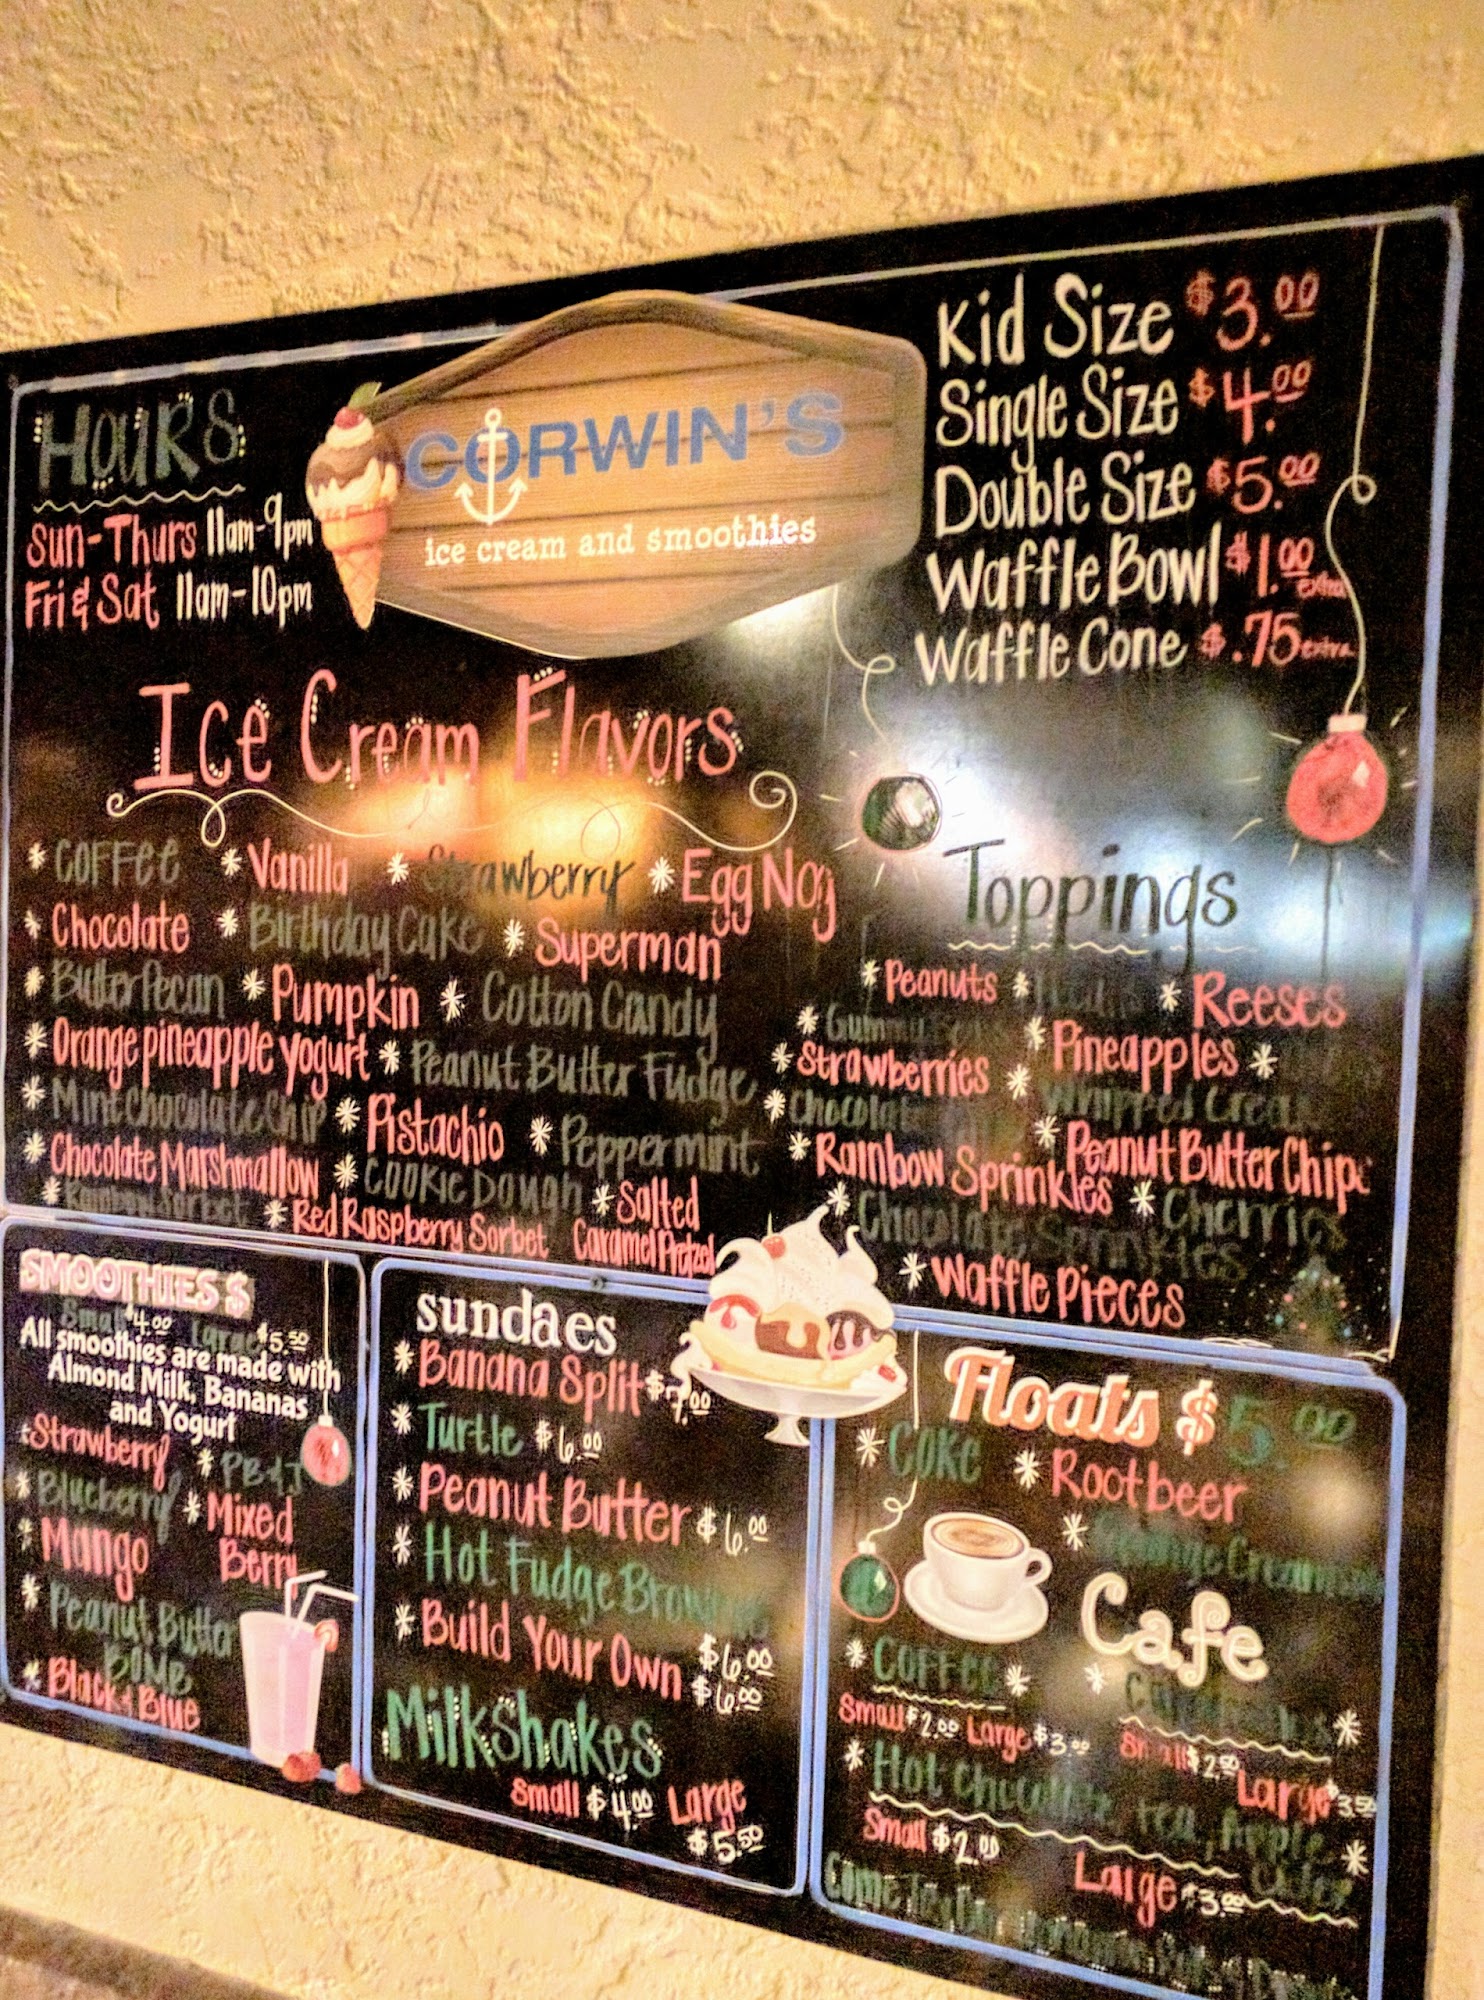 HOURS
Sun-Thurs 11am-9pm
Fri & Sat 11am-10pm
CORWIN'S
ice cream and smoothies
Kid Size $3.00
Single Size $4.00
Double Size $5.00
Waffle Bowl $1.00 extra
Waffle Cone $.75 extra
Ice Cream Flavors
* Coffee * Vanilla * Strawberry * Egg Nog
* Chocolate * Birthday Cake * Superman
* Butter Pecan * Pumpkin * Cotton Candy
* Orange pineapple yogurt * Peanut Butter Fudge
* Mint Chocolate Chip * Pistachio * Peppermint
* Chocolate Marshmallow * Cookie Dough * Salted
Caramel Pretzel
* Rainbow Sorbet * Red Raspberry Sorbet
Toppings
* Peanuts * * Reeses
* Gummi * Pineapples *
* Strawberries * Whipped Cream
* Chocolate * Peanut Butter Chips
* Rainbow Sprinkles * Cherries
* Chocolate Sprinkles
* Waffle Pieces
SMOOTHIES $
Small $4.00 Large $5.50
All smoothies are made with
Almond Milk, Bananas
and Yogurt
* Strawberry * PB&J
* Blueberry * Mixed
Berry
* Mango
* Peanut Butter
BOMB
* Black & Blue
sundaes
* Banana Split $7.00
* Turtle $6.00
* Peanut Butter $6.00
* Hot Fudge Brownie
$6.00
* Build Your Own $6.00
Milkshakes
Small $4.00 Large
$5.50
Floats $5.00
* Coke * Rootbeer
* Orange Creamsicle
Cafe
* Coffee * *
Small $2.00 Large $3.00 Small $2.50 Large $3.50
* Hot Chocolate, Tea, Apple
Cider *
Small $2.00 Large $3.00
Come Try